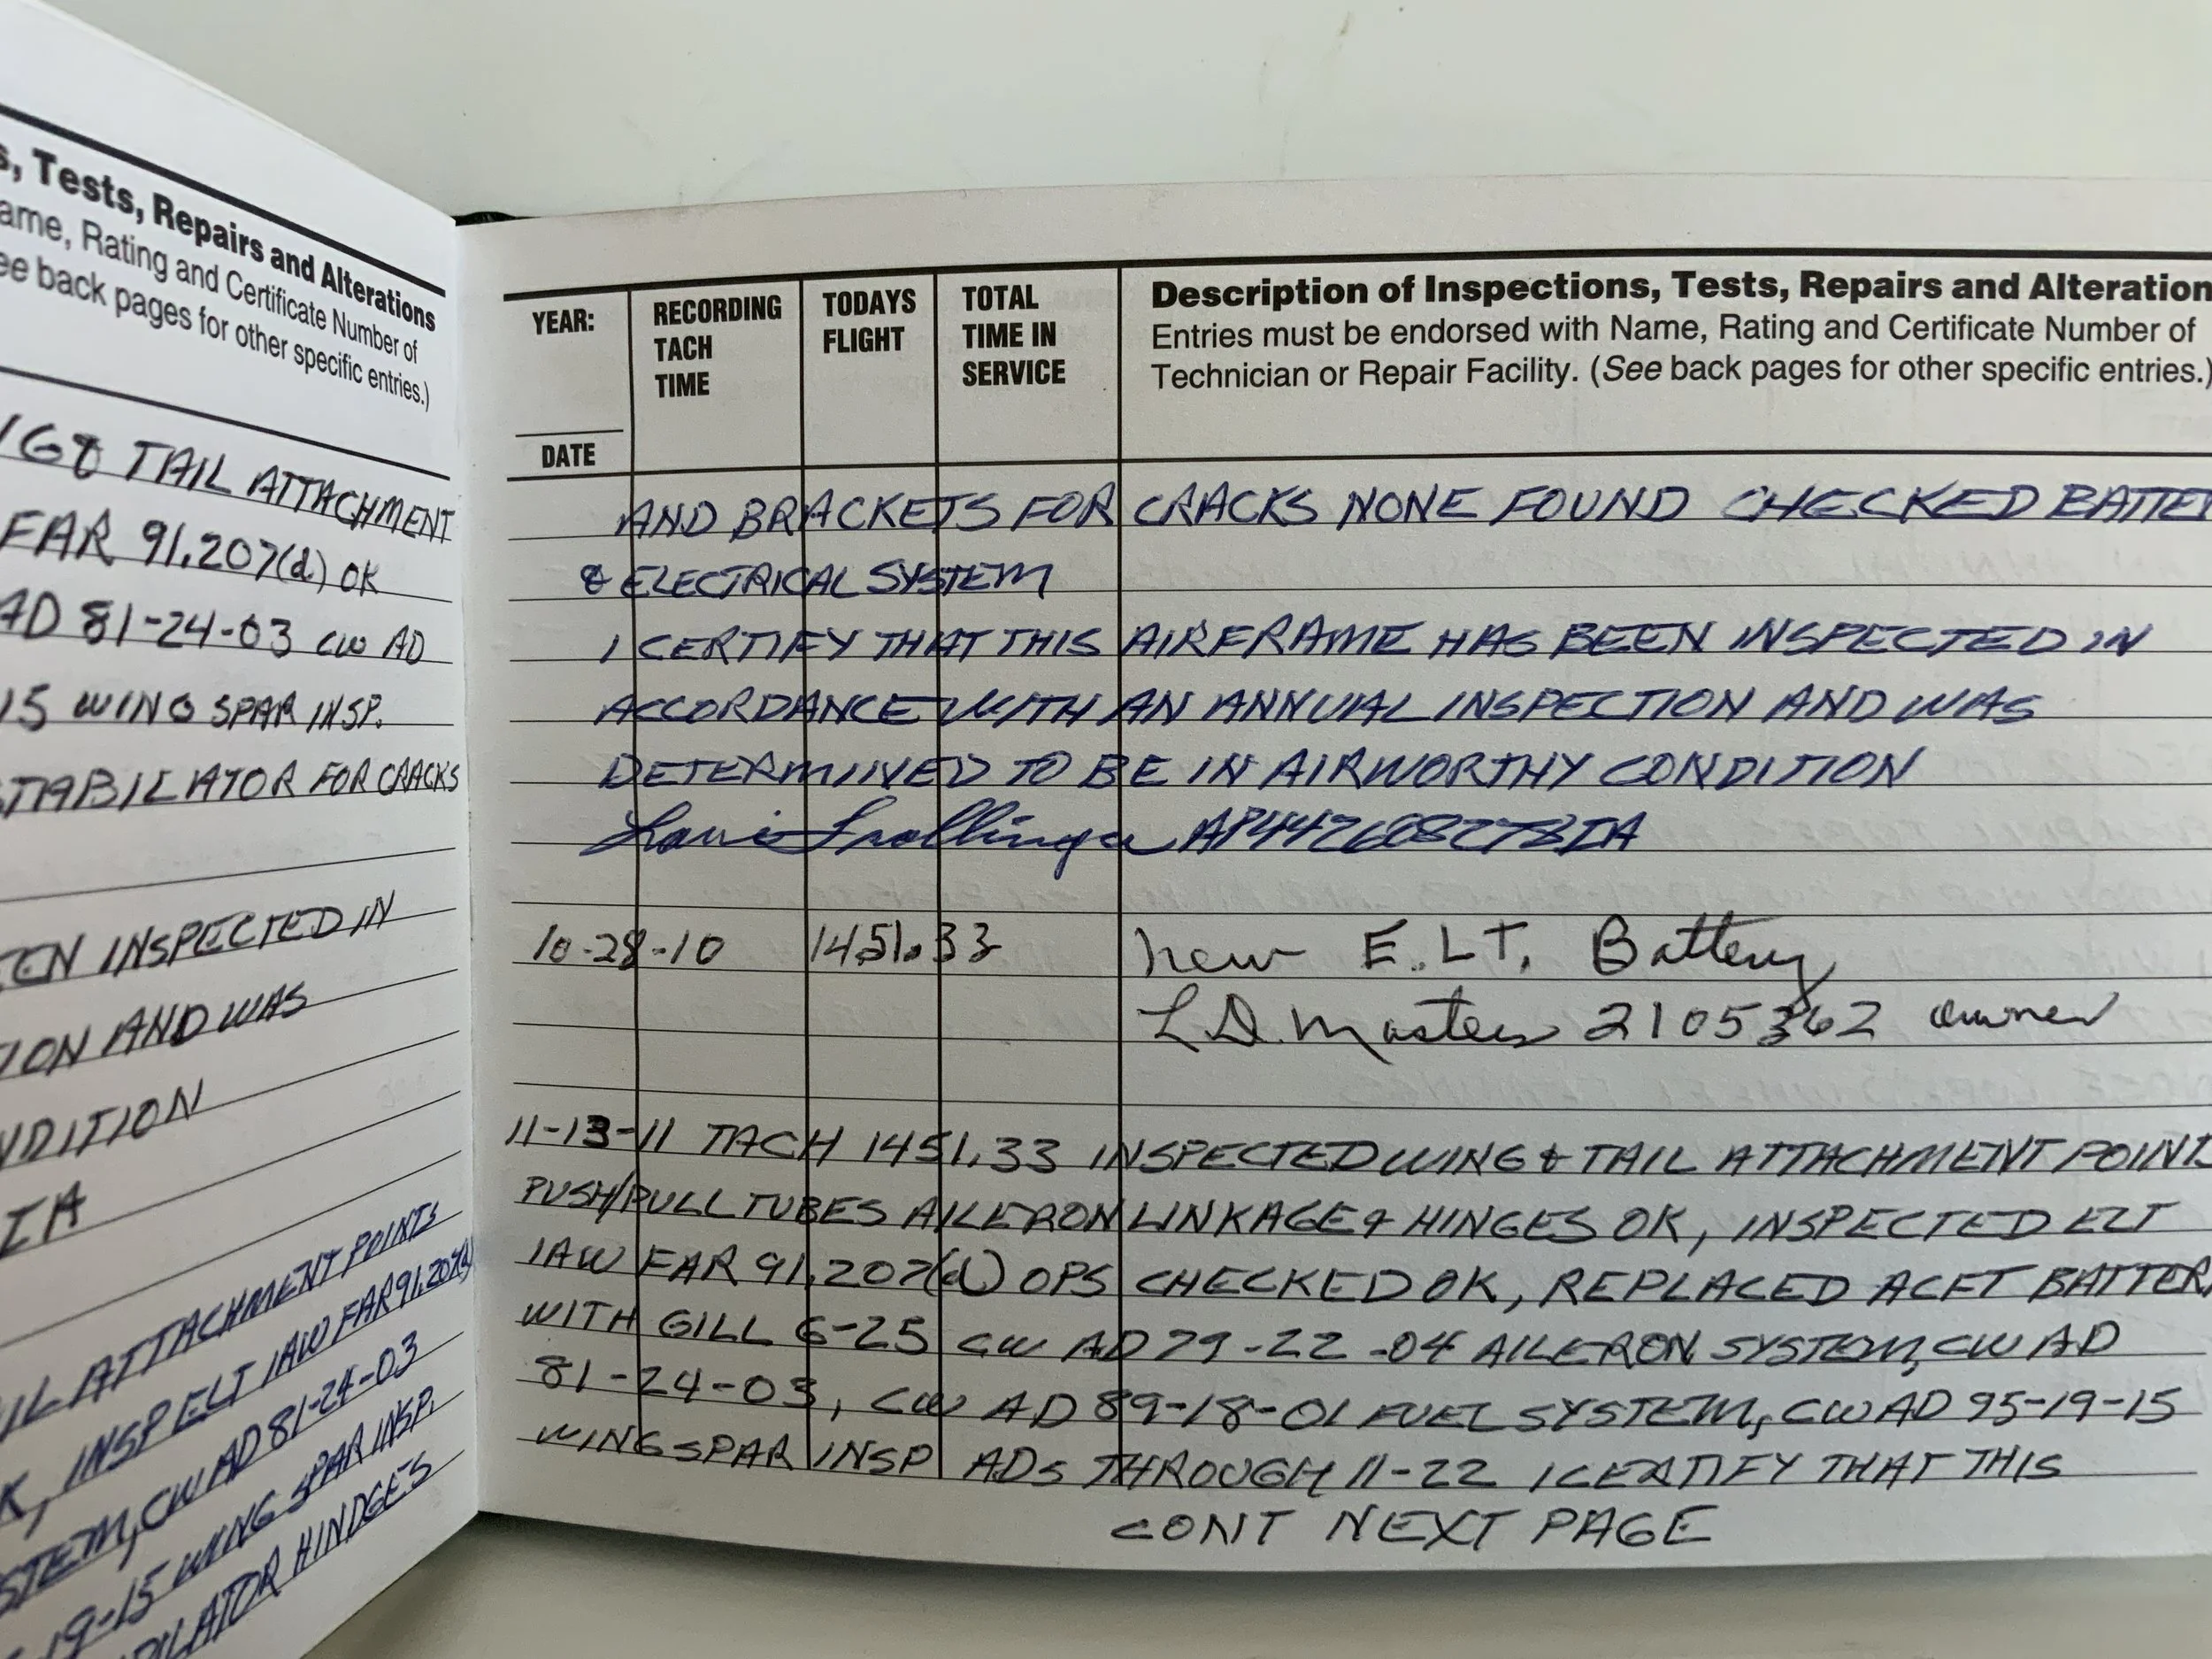 s, Tests, Repairs and Alterations
ame, Rating and Certificate Number of
ee back pages for other specific entries.)
WG & TAIL ATTACHMENT
FAR 91.207(d) OK
AD 81-24-03 CW AD
15 WING SPAR INSP.
STABILATOR FOR CRACKS
EEN INSPECTED IN
ION AND WAS
NDITION
IA
IL ATTACHMENT POINTS
K, INSP ELT IAW FAR 91.207(d)
STEM, CW AD 81-24-03
-19-15 WING SPAR INSP.
BILATOR HINDGES
YEAR:
DATE
RECORDING
TACH
TIME
TODAYS
FLIGHT
TOTAL
TIME IN
SERVICE
Description of Inspections, Tests, Repairs and Alteration
Entries must be endorsed with Name, Rating and Certificate Number of
Technician or Repair Facility. (See back pages for other specific entries.)
AND BRACKETS FOR CRACKS NONE FOUND CHECKED BATTER
& ELECTRICAL SYSTEM
I CERTIFY THAT THIS AIRFRAME HAS BEEN INSPECTED IN
ACCORDANCE WITH AN ANNUAL INSPECTION AND WAS
DETERMINED TO BE IN AIRWORTHY CONDITION
10-28-10 1451.33 new E.L.T. Battery
L.D. Masters owner
11-13-11 TACH 1451.33 INSPECTED WING & TAIL ATTACHMENT POINTS
PUSH/PULL TUBES AILERON LINKAGE & HINGES OK, INSPECTED ELT
IAW FAR 91.207(d) OPS CHECKED OK, REPLACED ACFT BATTERY
WITH GILL G-25 CW AD 79-22-04 AILERON SYSTEM, CW AD
81-24-03, CW AD 89-18-01 FUEL SYSTEM, CW AD 95-19-15
WING SPAR INSP ADs THROUGH 11-22 I CERTIFY THAT THIS
CONT NEXT PAGE